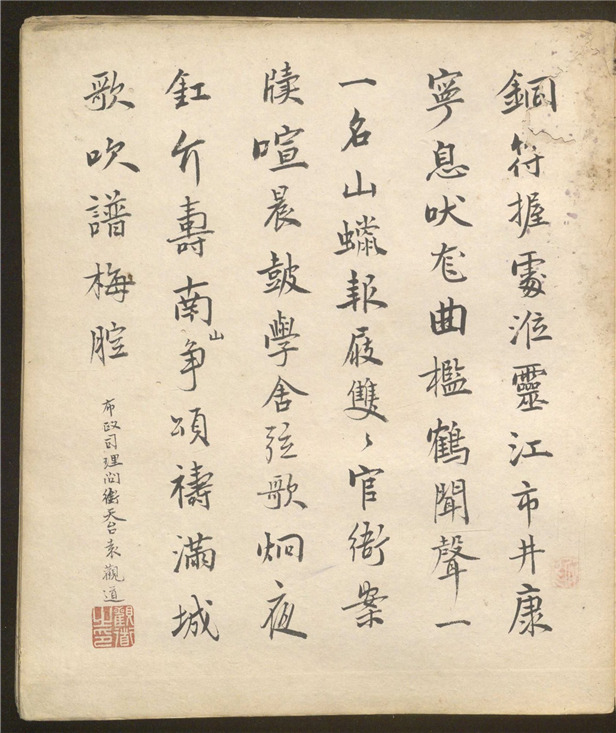 銅符握處涖靈江市井康
寧息吠尨曲檻鶴聞聲一
一名山蠟報屐雙〻官衙案
牘喧晨鼓學舍弦歌炯夜
釭介壽南山爭頌禱滿城
歌吹譜梅腔
布政司理問銜天台袁觀道
觀道之印